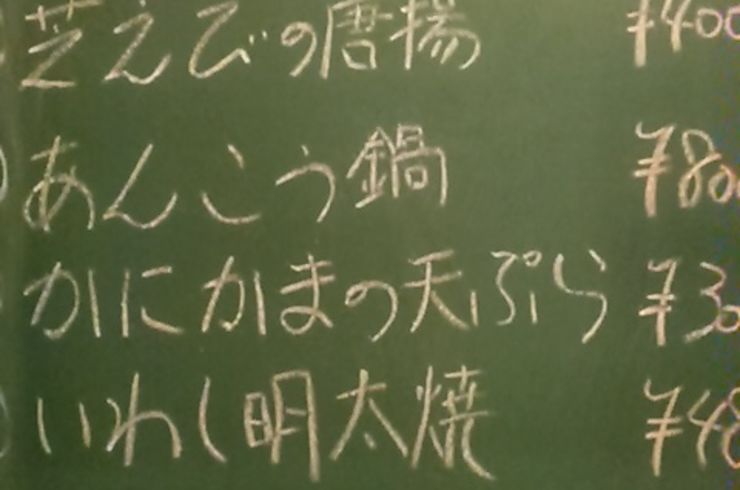 芝えびの唐揚 ¥400
あんこう鍋 ¥80
かにかまの天ぷら ¥30
いわし明太焼 ¥48